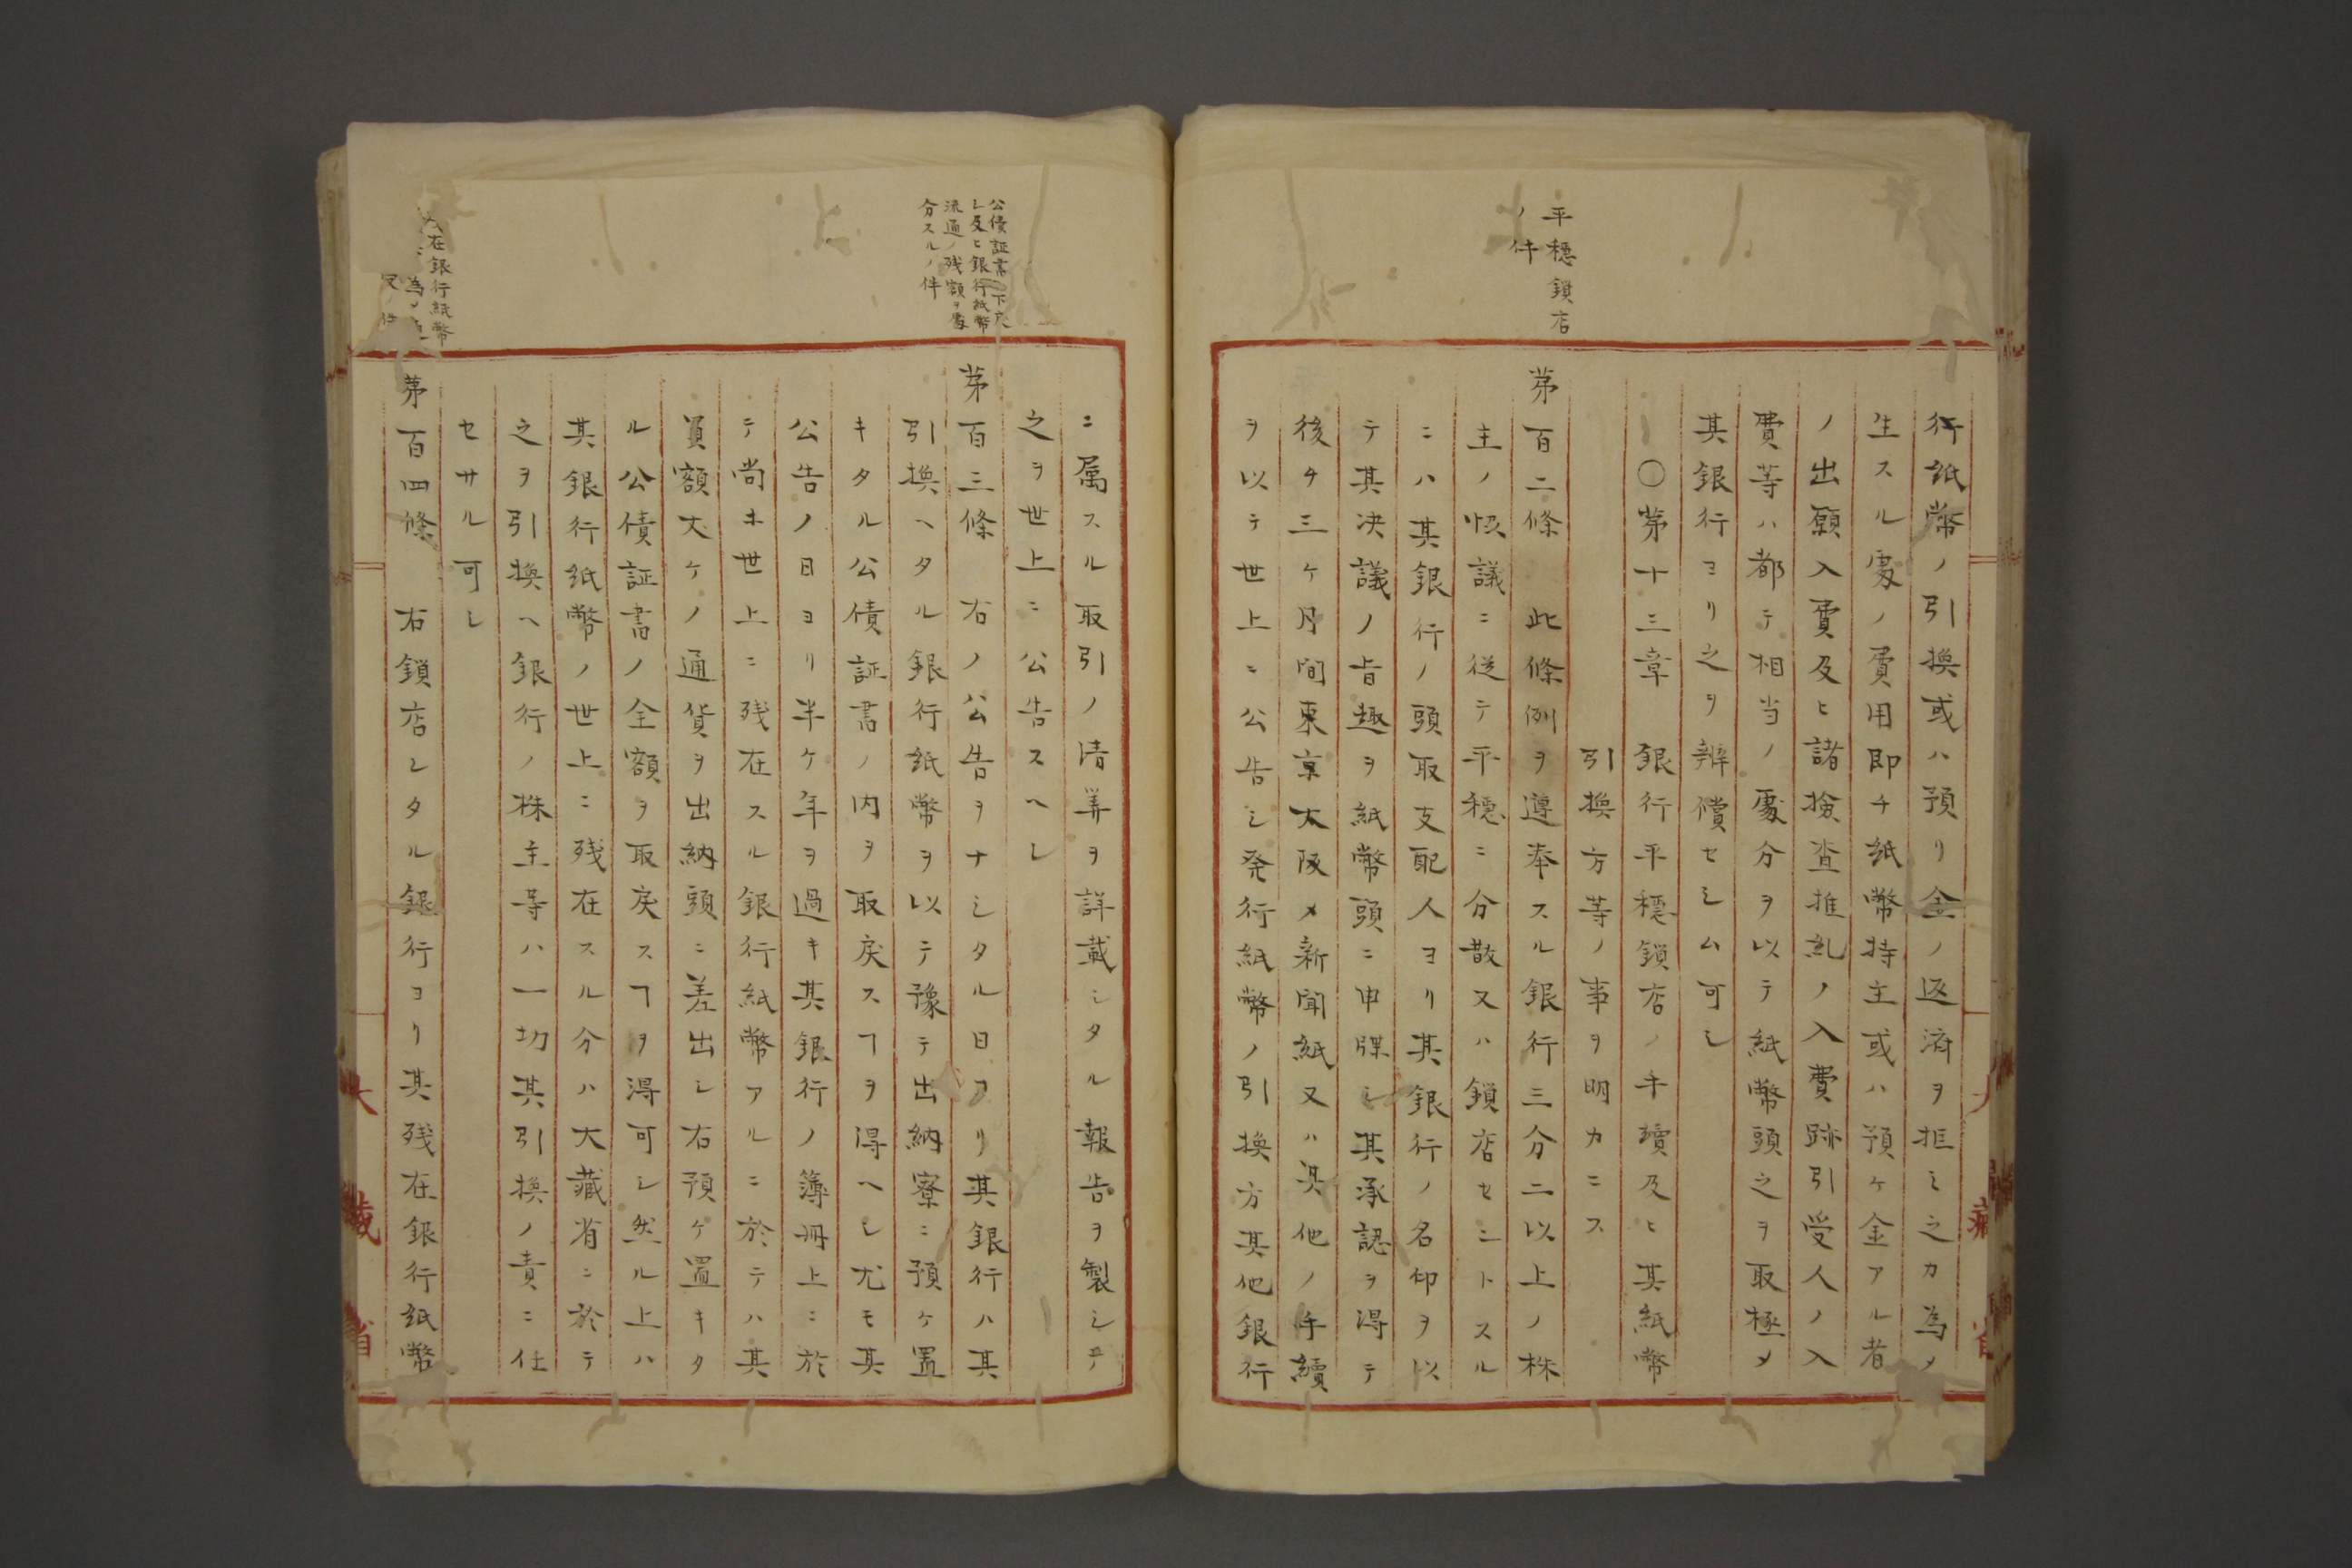 平穩鎖店
ノ件
行紙幣ノ引換或ハ預リ金ノ返済ヲ拒ミ之カ為メ
生スル處ノ費用即チ紙幣持主或ハ預ケ金アル者
ノ出願入費及ヒ諸撿查推糺ノ入費跡引受人ノ入
費等ハ都テ相当ノ處分ヲ以テ紙幣頭之ヲ取極メ
其銀行ヨリ之ヲ辨償セシム可シ
〇苐十三章 銀行平穩鎖店ノ手續及ヒ其紙幣
引換方等ノ事ヲ明カニス
苐百二條 此條例ヲ遵奉スル銀行三分二以上ノ株
主ノ恊議ニ從テ平穩ニ分散又ハ鎖店セントスル
ニハ其銀行ノ頭取支配人ヨリ其銀行ノ名印ヲ以
テ其决議ノ旨趣ヲ紙幣頭ニ申牒シ其承認ヲ得テ
後チ三ケ月間東京大阪ノ新聞紙又ハ其他ノ手續
ヲ以テ世上ニ公告シ発行紙幣ノ引換方其他銀行
公債証書ノ下戻
シ及ヒ銀行紙幣
流通ノ残額ヲ處
分スルノ件
ニ属スル取引ノ清筭ヲ詳載シタル報告ヲ製シテ
之ヲ世上ニ公告スヘシ
苐百三條 右ノ公告ヲナシタル日ヨリ其銀行ハ其
引換ヘタル銀行紙幣ヲ以テ豫テ出納寮ニ預ケ置
キタル公債証書ノ内ヲ取戻スヿヲ得ヘシ尤モ其
公告ノ日ヨリ半ケ年ヲ過キ其銀行ノ簿冊上ニ於
テ尚ホ世上ニ残在スル銀行紙幣アルニ於テハ其
員額丈ケノ通貨ヲ出納頭ニ差出シ右預ケ置キタ
ル公債証書ノ全額ヲ取戻スヿヲ得可シ然ル上ハ
其銀行紙幣ノ世上ニ残在スル分ハ大藏省ニ於テ
之ヲ引換ヘ銀行ノ株主等ハ一切其引換ノ責ニ任
セサル可シ
在銀行紙幣
苐百四條 右鎖店シタル銀行ヨリ其残在銀行紙幣
大藏省